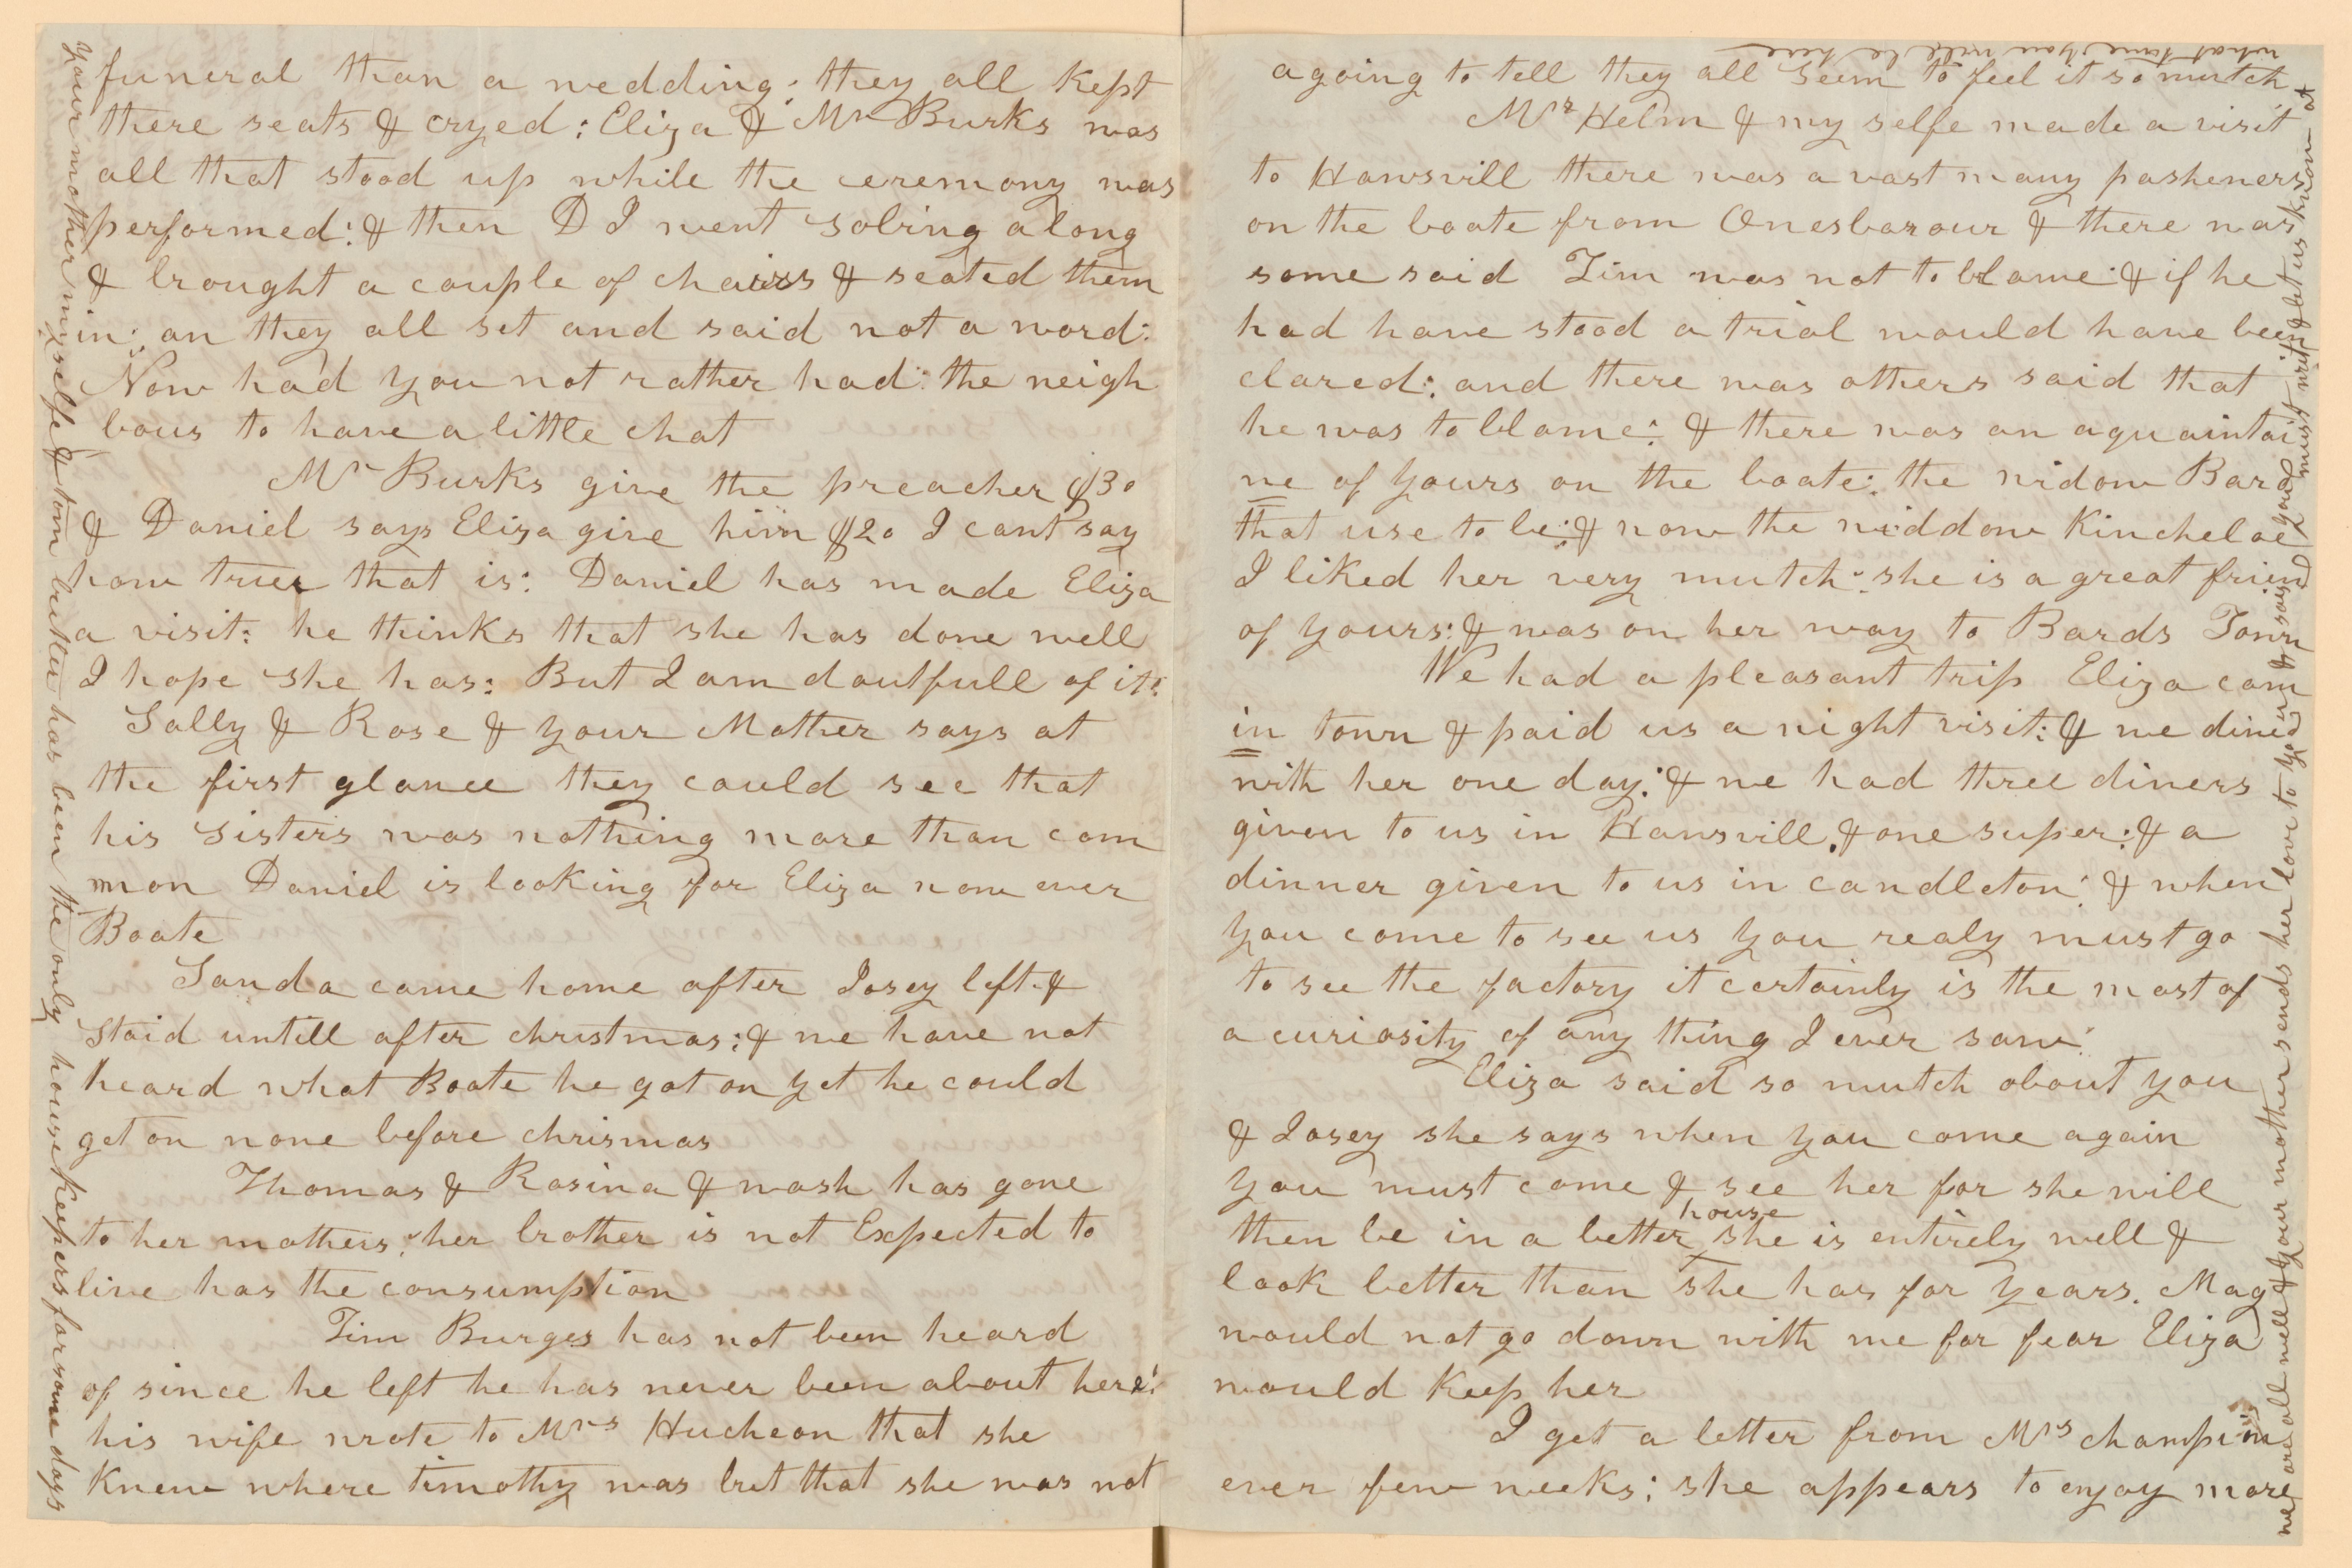 funeral than a wedding; they all Kept
there seats & cryed: Eliza & Mr Burks was
all that stood up while the ceremony was
performed: & then D I went sobing along
& brought a couple of chairs & seated them
in; an they all set and said not a word:
Now had you not rather had the neigh
bours to have a little chat
Mr Burks give the preacher $30
& Daniel says Eliza give him $20 I cant say
how truer that is: Daniel has made Eliza
a visit: he thinks that she has done well
I hope she has: But I am doutfull of it:
Sally & Rose & your Mother says at
the first glance they could see that
his sisters was nothing more than com
mon Daniel is looking for Eliza now ever
Boate
Sanda came home after Josey left &
staid untill after christmas: & we have not
heard what Boate he got on yet he could
get on none before chrismas
Thomas & Rosina & wash has gone
to her mothers: her brother is not Expected to
live has the consumption
Tim Burges has not been heard
of since he left he has never been about here:
his wife wrote to Mrs Hucheon that she
Knew where timothy was but that she was not
your mother my selfe & tom butler has been the only house Keepers for some days
agoing to tell they all seem to feel it so mutch
Mr Helm & my selfe made a visit
to Hawsvill there was a vast many pasheners
on the boate from Onesbarour & there was
some said Tim was not to blame: & if he
had have stood a trial would have been
clared: and there was others said that
he was to blame: & there was an aquaintai
ne of yours on the boate: the widow Bard
that use to be: & now the widdow Kincheloe
I liked her very mutch: she is a great friend
of yours: & was on her way to Bards Town
We had a pleasant trip Eliza cam
in town & paid us a night visit: & we dined
with her one day: & we had three diners
given to us in Hawsvill. & one super: & a
dinner given to us in candleton: & when
you come to see us you realy must go
to see the factory it certainly is the most of
a curiosity of any thing I ever saw:
Eliza said so mutch about you
& Josey she says when you come again
you must come & see her for she will
then be in a better house she is entirely well &
look better than she has for years. Mag
would not go down with me for fear Eliza
would Keep her
I get a letter from Mrs champins
ever few weeks: she appears to enjoy more
we are all well & your mother sends her love to you & says you must write & let us know at
what time you will be here